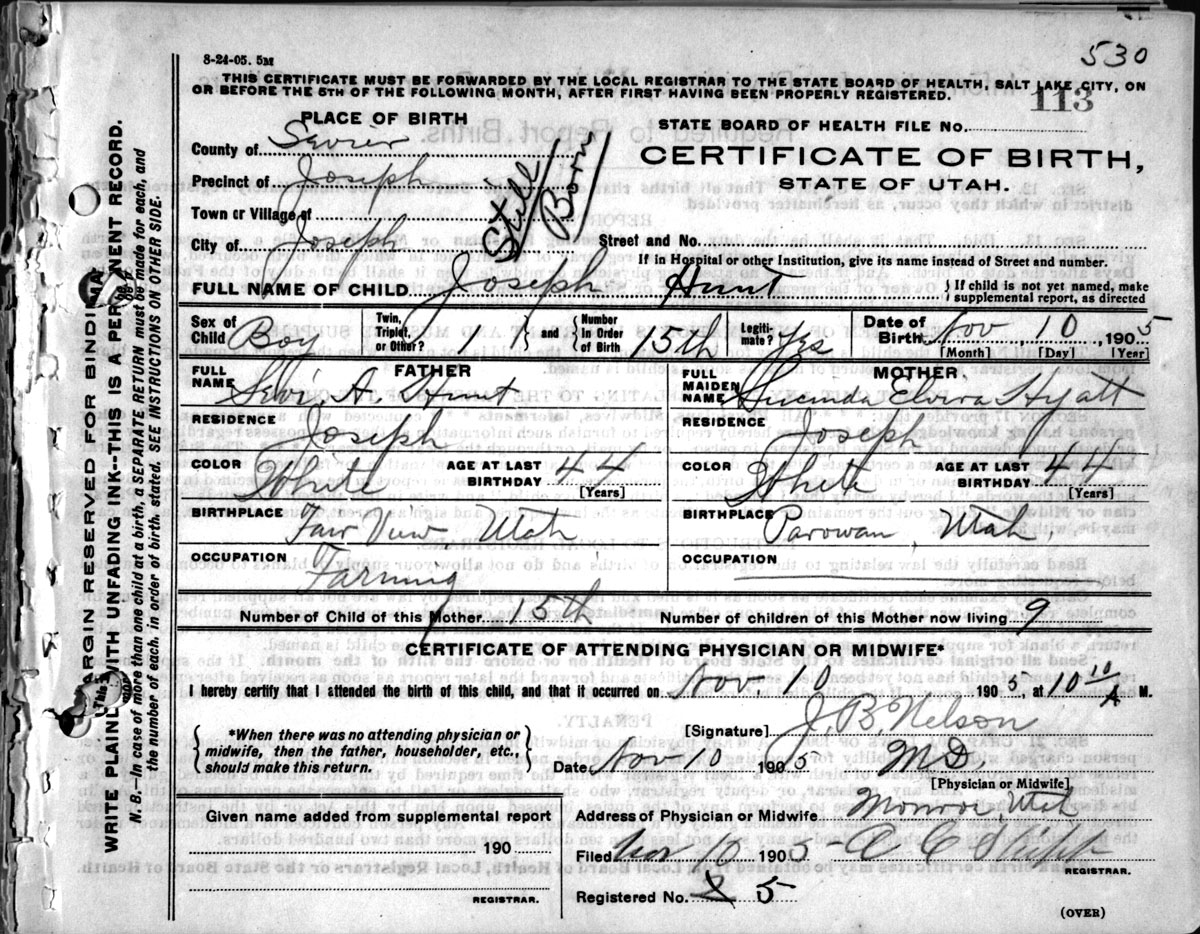 530
8-24-05. 5M
THIS CERTIFICATE MUST BE FORWARDED BY THE LOCAL REGISTRAR TO THE STATE BOARD OF HEALTH, SALT LAKE CITY, ON
OR BEFORE THE 5TH OF THE FOLLOWING MONTH, AFTER FIRST HAVING BEEN PROPERLY REGISTERED.
113
PLACE OF BIRTH
STATE BOARD OF HEALTH FILE NO.
County of Sevier
CERTIFICATE OF BIRTH,
STATE OF UTAH.
Precinct of Joseph
Still Born
Town or Village of
City of Joseph
Street and No.
If in Hospital or other Institution, give its name instead of Street and number.
FULL NAME OF CHILD Joseph Hunt
{ If child is not yet named, make
supplemental report, as directed
Sex of Child Boy
Twin, Triplet, or Other? 1 } and { Number In Order of Birth 15th
Legiti-mate? Yes
Date of Birth Nov, 10, 1905
[Month] [Day] [Year]
FATHER
MOTHER
FULL NAME Levi A Hunt
FULL MAIDEN NAME Lucinda Elvira Hyatt
RESIDENCE Joseph
RESIDENCE Joseph
COLOR White
AGE AT LAST BIRTHDAY 44 [Years]
COLOR
AGE AT LAST BIRTHDAY 44 [Years]
BIRTHPLACE Fair View, Utah
BIRTHPLACE Parowan, Utah,
OCCUPATION Farming
OCCUPATION
Number of Child of this Mother 15th
Number of children of this Mother now living 9
CERTIFICATE OF ATTENDING PHYSICIAN OR MIDWIFE*
I hereby certify that I attended the birth of this child, and that it occurred on Nov, 10 1905, at 10 10/A M.
{ *When there was no attending physician or
midwife, then the father, householder, etc.,
should make this return. }
[Signature] J. B. Nelson
Date Nov 10 1905 M D,
[Physician or Midwife]
Given name added from supplemental report
190
REGISTRAR.
Address of Physician or Midwife Monroe, Utah
Filed Nov 10 1905
REGISTRAR.
Registered No. 5
(OVER)
MARGIN RESERVED FOR BINDING
WRITE PLAINLY WITH UNFADING INK--THIS IS A PERMANENT RECORD.
N. B.--In case of more than one child at a birth, a SEPARATE RETURN must be made for each, and
the number of each, in order of birth, stated. SEE INSTRUCTIONS ON OTHER SIDE.